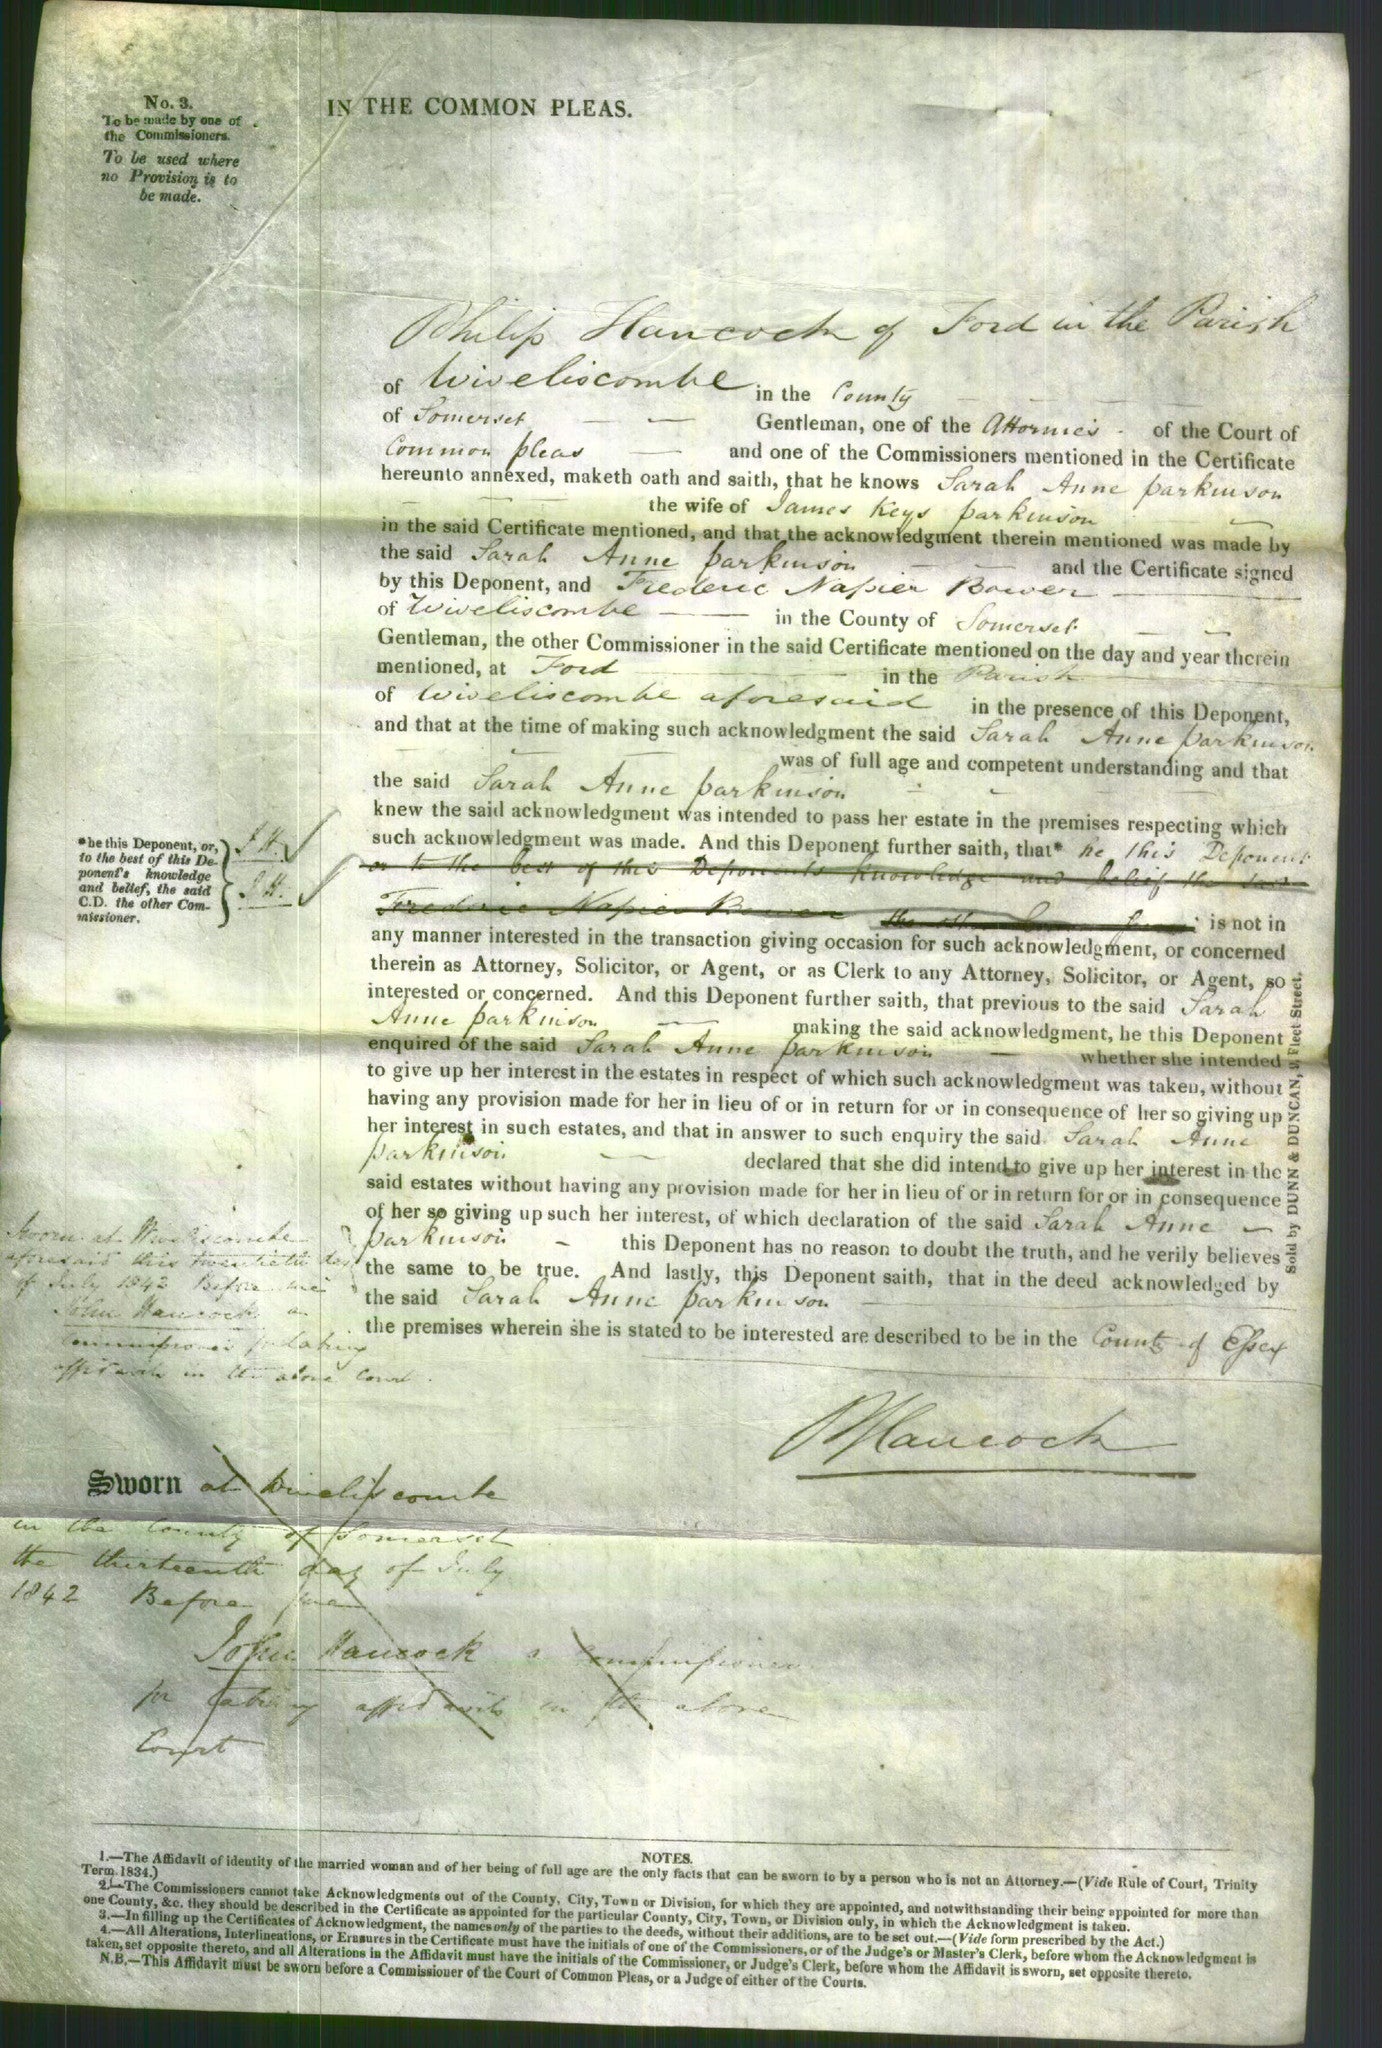 No. 3.
To be made by one of
the Commissioners.
To be used where
no Provision is to
be made.
IN THE COMMON PLEAS.
Philip Hancock of Ford in the Parish
of Wiveliscombe in the County
of Somerset Gentleman, one of the Attornies of the Court of
Common pleas and one of the Commissioners mentioned in the Certificate
hereunto annexed, maketh oath and saith, that he knows Sarah Anne parkinson
the wife of James Keys parkinson
in the said Certificate mentioned, and that the acknowledgment therein mentioned was made by
the said Sarah Anne parkinson and the Certificate signed
by this Deponent, and Frederic Napier Bower
of Wiveliscombe in the County of Somerset
Gentleman, the other Commissioner in the said Certificate mentioned on the day and year therein
mentioned, at Ford in the Parish
of Wiveliscombe aforesaid in the presence of this Deponent,
and that at the time of making such acknowledgment the said Sarah Anne parkinson
was of full age and competent understanding and that
the said Sarah Anne parkinson
knew the said acknowledgment was intended to pass her estate in the premises respecting which
such acknowledgment was made. And this Deponent further saith, that* he this Deponent
or to the best of this Deponents knowledge and belief the said
Frederic Napier Bower the other is not in
any manner interested in the transaction giving occasion for such acknowledgment, or concerned
therein as Attorney, Solicitor, or Agent, or as Clerk to any Attorney, Solicitor, or Agent, so
interested or concerned. And this Deponent further saith, that previous to the said Sarah
Anne parkinson making the said acknowledgment, he this Deponent
enquired of the said Sarah Anne parkinson whether she intended
to give up her interest in the estates in respect of which such acknowledgment was taken, without
having any provision made for her in lieu of or in return for or in consequence of her so giving up
her interest in such estates, and that in answer to such enquiry the said Sarah Anne
parkinson declared that she did intend to give up her interest in the
said estates without having any provision made for her in lieu of or in return for or in consequence
of her so giving up such her interest, of which declaration of the said Sarah Anne
parkinson this Deponent has no reason to doubt the truth, and he verily believes
the same to be true. And lastly, this Deponent saith, that in the deed acknowledged by
the said Sarah Anne parkinson
the premises wherein she is stated to be interested are described to be in the County of Essex
*he this Deponent, or,
to the best of this De-
ponent's knowledge
and belief, the said
C.D. the other Com-
missioner.
J. H.
J. H.
Sold by DUNN & DUNCAN, 9, Fleet Street.
Sworn at Wiveliscombe
aforesaid this twentieth day
of July 1842 Before me
John Hancock a
Commissioner for taking
affidavits in the above Court.
P Hancock
Sworn at Wiveliscombe
in the County of Somerset
the thirteenth day of July
1842 Before me
John Hancock a Commissioner
for taking affidavits in the above
Court
NOTES.
1.—The Affidavit of identity of the married woman and of her being of full age are the only facts that can be sworn to by a person who is not an Attorney.—(Vide Rule of Court, Trinity
Term 1834.)
2.—The Commissioners cannot take Acknowledgments out of the County, City, Town or Division, for which they are appointed, and notwithstanding their being appointed for more than
one County, &c. they should be described in the Certificate as appointed for the particular County, City, Town, or Division only, in which the Acknowledgment is taken.
3.—In filling up the Certificates of Acknowledgment, the names only of the parties to the deeds, without their additions, are to be set out.—(Vide form prescribed by the Act.)
4.—All Alterations, Interlineations, or Erasures in the Certificate must have the initials of one of the Commissioners, or of the Judge's or Master's Clerk, before whom the Acknowledgment is
taken, set opposite thereto, and all Alterations in the Affidavit must have the initials of the Commissioner, or Judge's Clerk, before whom the Affidavit is sworn, set opposite thereto.
N.B.—This Affidavit must be sworn before a Commissioner of the Court of Common Pleas, or a Judge of either of the Courts.